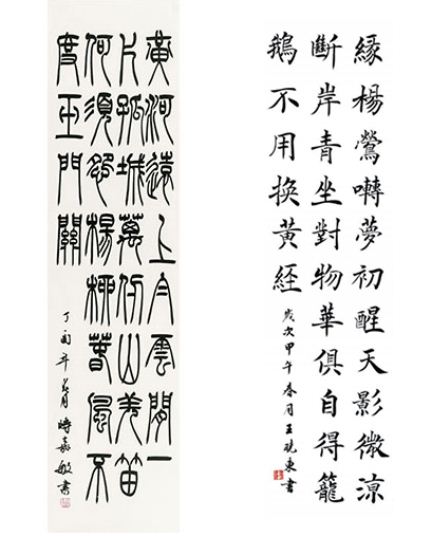 黃河遠上白雲間一
片孤城萬仞山羌笛
何須怨楊柳春風不
度玉門關
丁酉年月時嘉敏書
綠楊鶯囀夢初醒天影微涼
斷岸青坐對物華俱自得籠
鵝不用換黃經
歲次甲午春月王曉東書